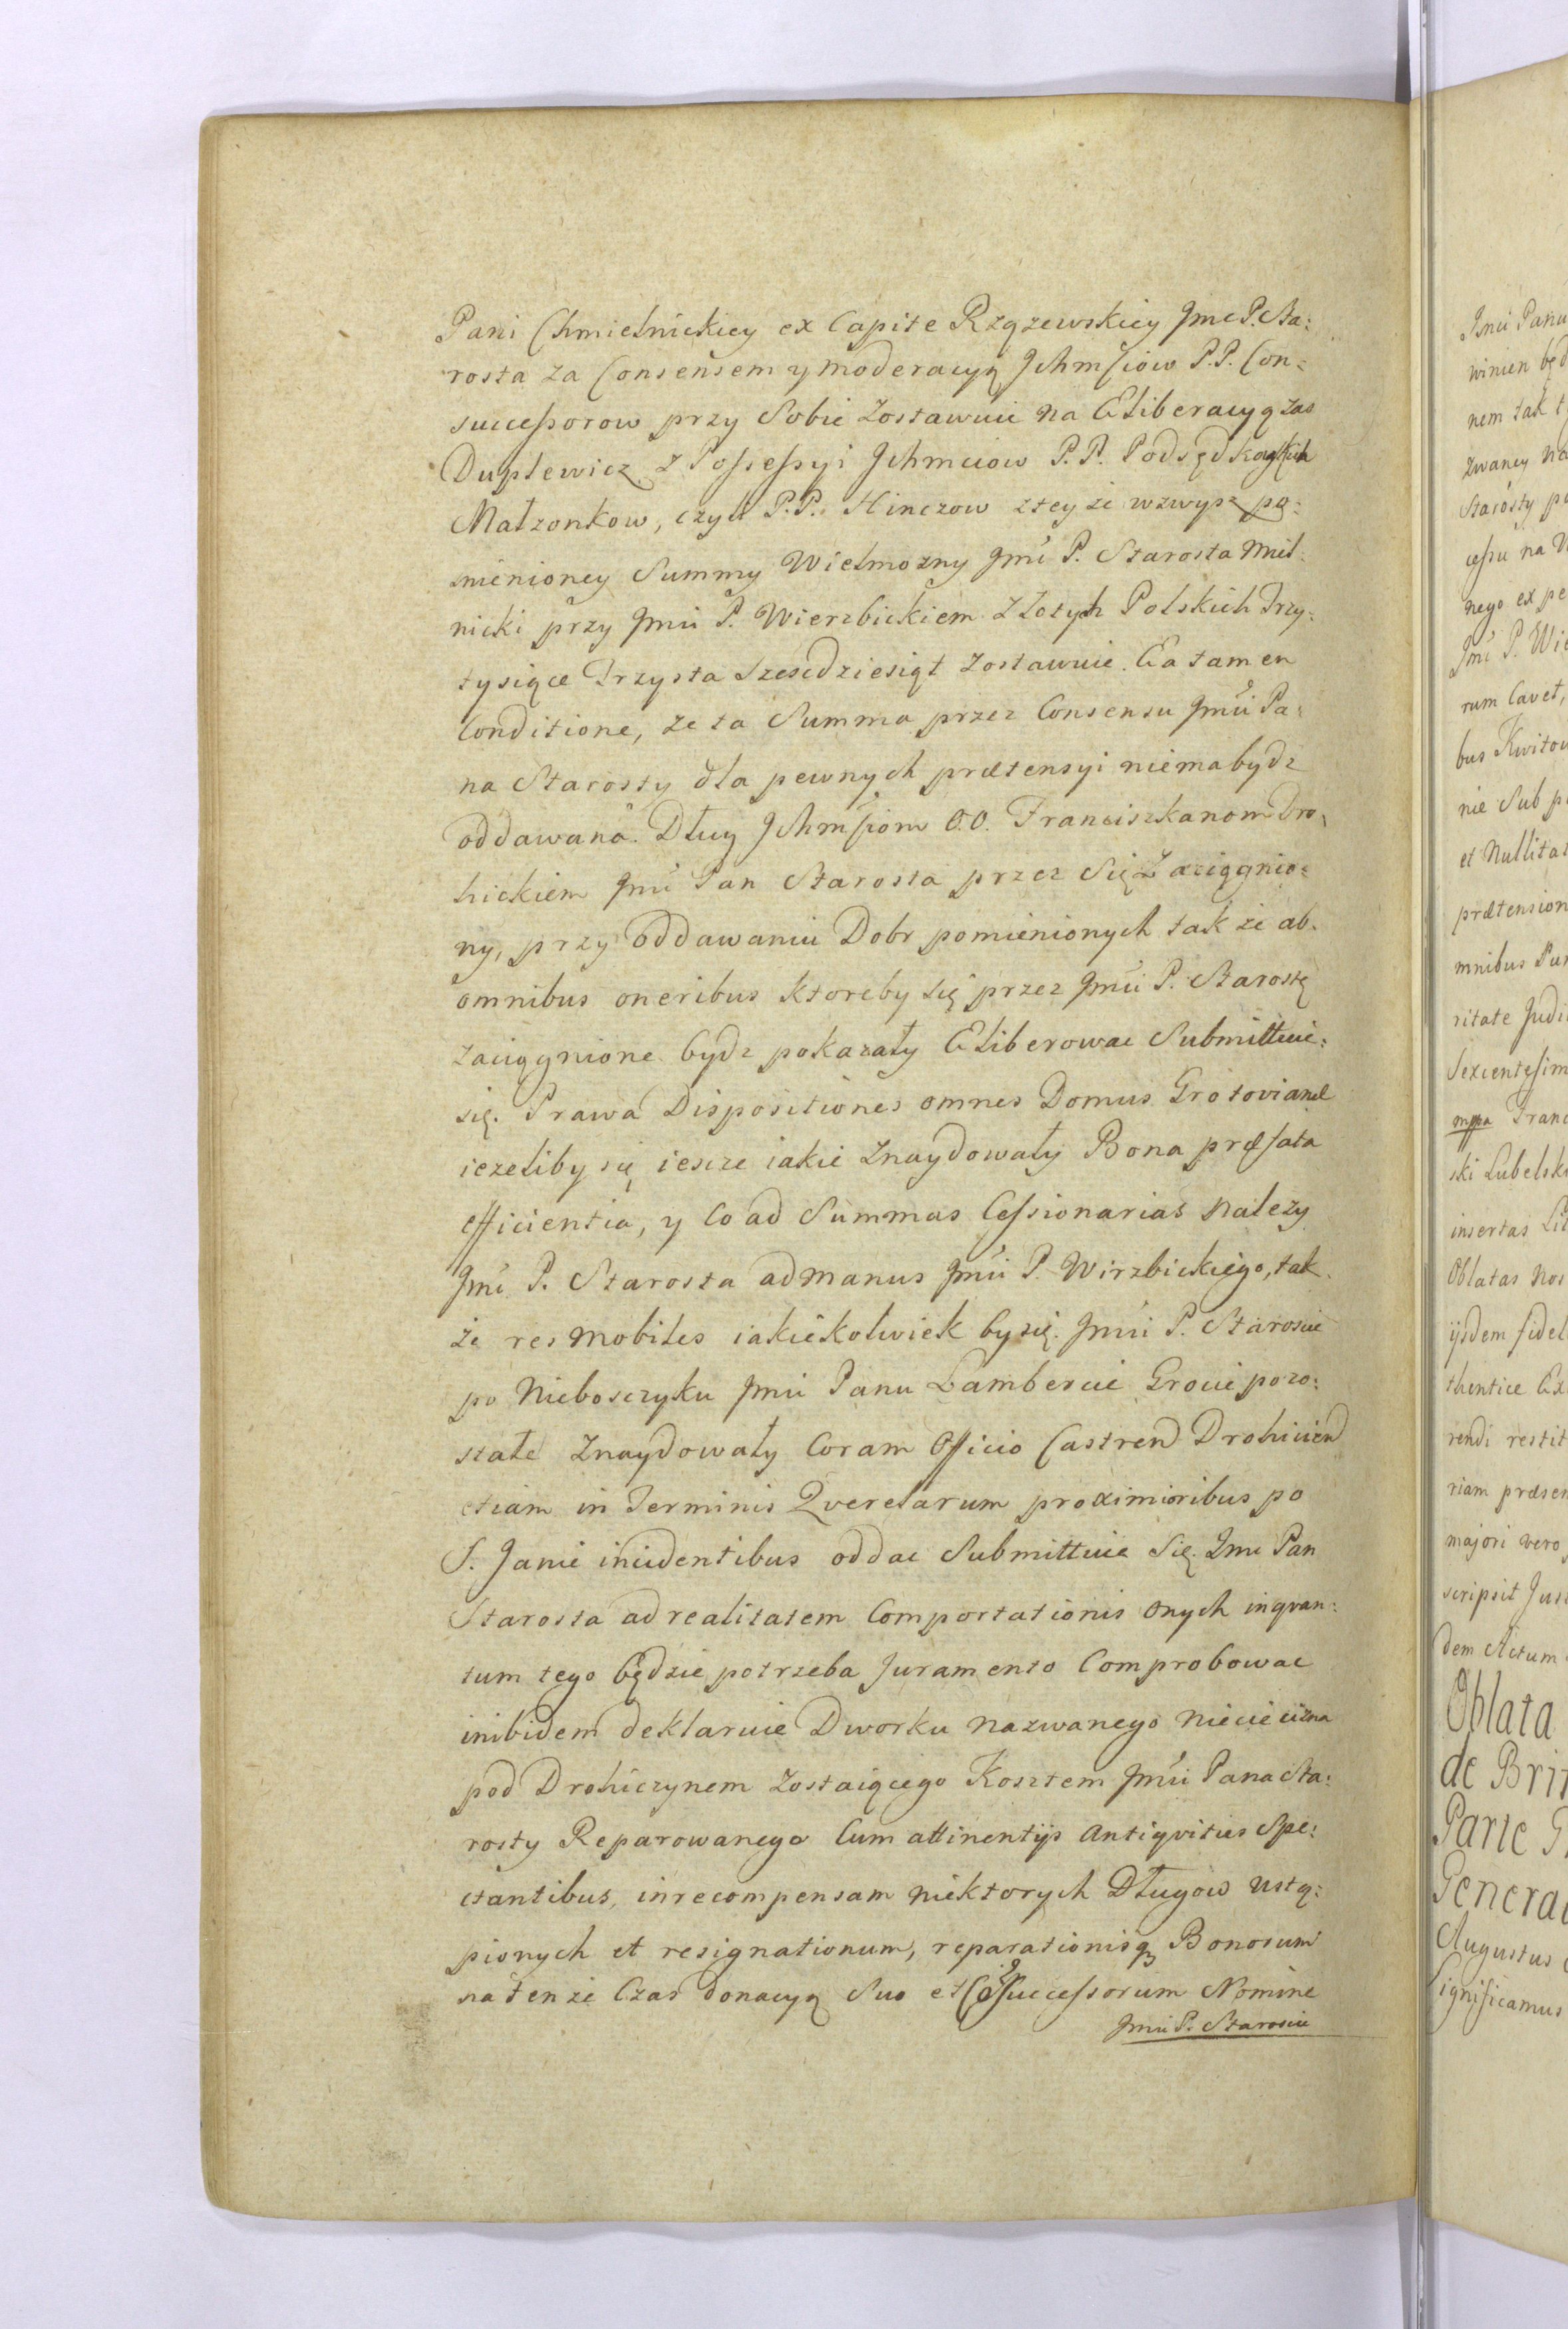 Pani Chmielnickiey ex Capite Rzązewskiey Jmc P. Sta:
rosta za Consensem y moderacyą Jchmsciow P.P. Con:
successorow przy Sobie zostawuie na Eliberacyą zas
Duplewicz z Possessyi Jchmciow P.P. Podsędkostwa
Małzonkow, czyli P.P. Hinczow z tey że wzwysz po:
mienioney Summy Wielmozny Jmć P. Starosta Miel:
nicki przy Jmći P. Wierzbickiem Złotych Polskich Trzy:
tysiące Trzysta Szescdziesiąt zostawuie. Ea tamen
Conditione, ze ta Summa przez Consensu Jmći Pa:
na Starosty dla pewnych prætensyi niema bydz
oddawana. Długi Jchmsciom O.O. Franciszkanom Dro:
hickiem Jmć Pan Starosta przez Się Zaciągnio:
ny, przy oddawaniu Dobr pomienionych tak że ab
omnibus oneribus ktoreby się przez Jmći P. Starostę
zaciągnione bydz pokazały Eliberowac Submittuie:
się. Prawa Dispositiones omnes Domus Grotovianæ
iezeliby się iescze iakie znaydowały Bona præfata
efficientia, y co ad Summas Cessionarias nalezy
Jmć P. Starosta ad manus Jmći P. Wirzbickiego, tak
że res mobiles iakiekolwiek by się. Jmći P. Staroscie
po Nieboszczyku Jmći Panu Lambercie Grocie pozo:
stałe znaydowały Coram Officio Castren Drohicien
etiam in Terminis Qverelarum proximioribus po
S. Janie incidentibus oddac Submittuie Się. Jmć Pan
Starosta ad realitatem Comportationis onych inqvan:
tum tego będzie potrzeba Juramento Comprobowac
inibidem deklaruie Dworku nazwanego Niecieczna
pod Drohiczynem zostaiącego Kosztem Jmći Pana Sta:
rosty Reparowanego Cum attinentijs antiqvitus Spe:
ctantibus, in recompensam niektorych Długow ustą:
pionych et resignationum, reparationisq Bonorum
na ten że Czas donacyą Suo et Cosuccessorum Nomine
Jmći P. Staroscie
Jmći Panu
winien będ
nem tak t
zwaney na
Starosty po
cessu na
nego ex pe
Jmć P. Wie
rum Cavet,
bus Kwitow
nie Sub p
et Nullitat
prætension
mnibus Pun
ritate Judi
Sexcentesim
mppa Franc
ski Lubelsk
insertas Lit
Oblatas nos
ijsdem fidel
thentice Ex
rendi restit
riam præsen
majori vero
scripsit Jus
dem Actum
Oblata
de Brit
Parte G
Genera
Augustus
Significamus